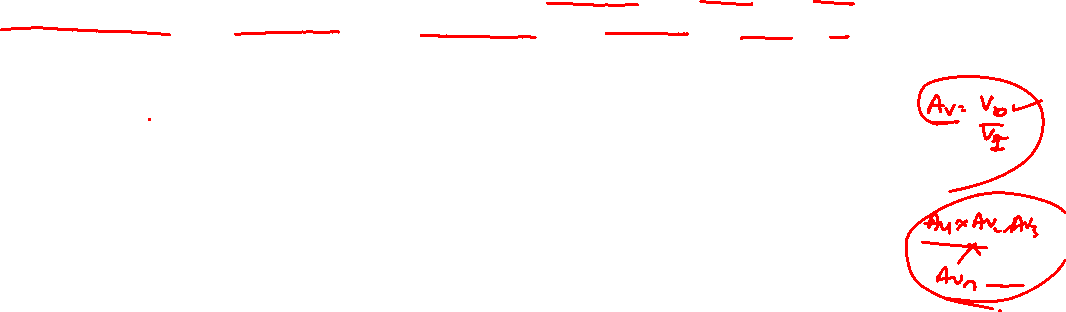 Av = Vo
VI
Av1 × Av2 Av3
Avn